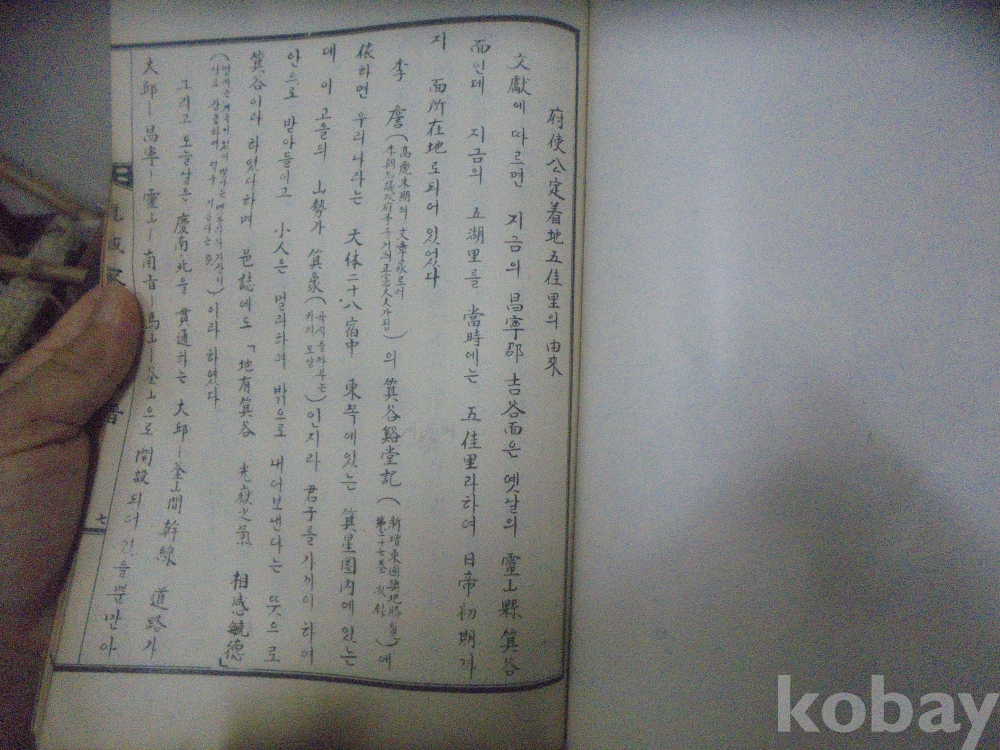 府使公定着地五佳里의 由來
文獻에 따르면 지금의 昌寧郡 吉谷面은 옛날의 靈山縣 箕谷
面인데 지금의 五湖里를 當時에는 五佳里라하여 日帝初期까
지 面所在地로되어 있었다
李詹(高麗末期의 文章家로서 ) 의 箕谷谿堂記 (新增東國輿地勝覽 第二十七卷 )에
依하면 우리나라는 天体二十八宿中 東쪽에있는 箕星圈内에 있는
데 이 고을의 山勢가 箕象(곡식을까부는 키의 모양)인지라 君子를가까이 하여
안으로 받아들이고 小人은 멀리하여 밖으로 내어보낸다는 뜻으로
箕谷이라 하였다하며 邑誌에도 「地有箕谷 光嶽之氣 相感毓德」
이라 하였다
그리고 오늘날은 慶南·北을 貫通하는 大邱–釜山間 幹線 道路가
大邱–昌寧–靈山–南旨–馬山–釜山으로 開設되어 있을뿐만 아
七
kobay